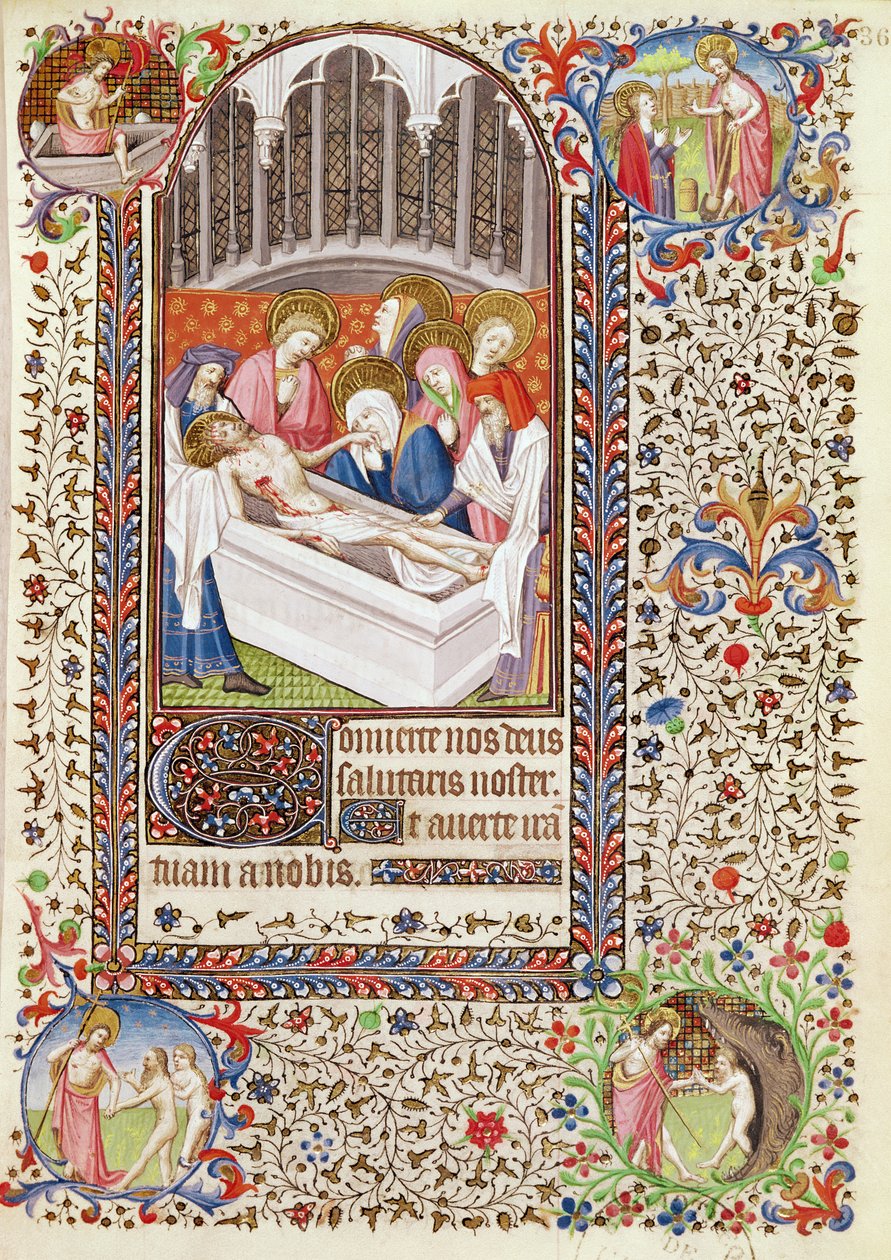 36
Conuerte nos deus
salutaris noster.
Et auerte irã
tuam a nobis.
DE